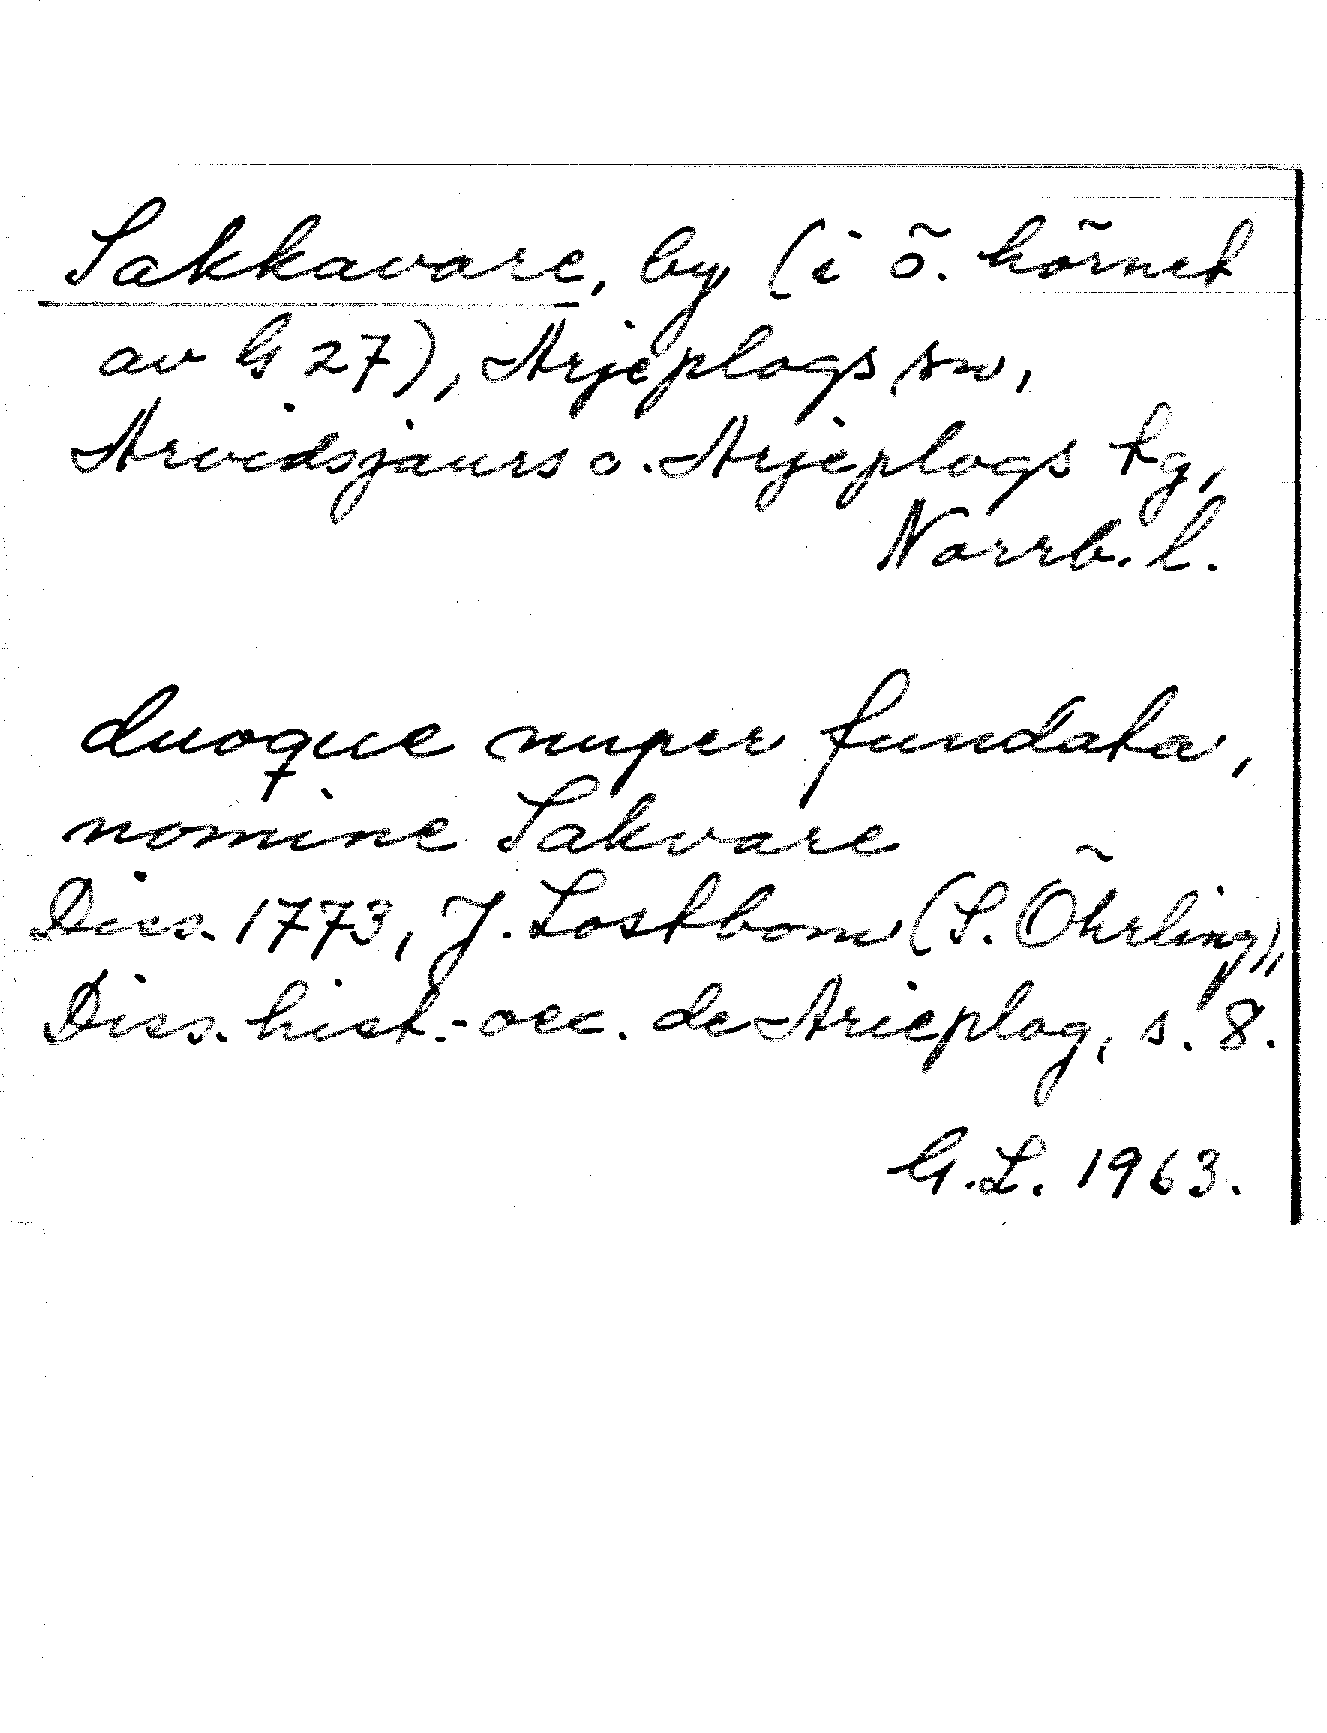 Sakkavare, by (i ö. hörnet
av G 27), Arjeplogs sn,
Arvidsjaurs o. Arjeplogs tg,
Norrb. l.
duoque nuper fundata,
nomine Sakvare
Diss. 1773, J. Lostbom (S. Öhrling),
Diss. hist.-oec. de Arieplog, s. 8.
G.L. 1963.